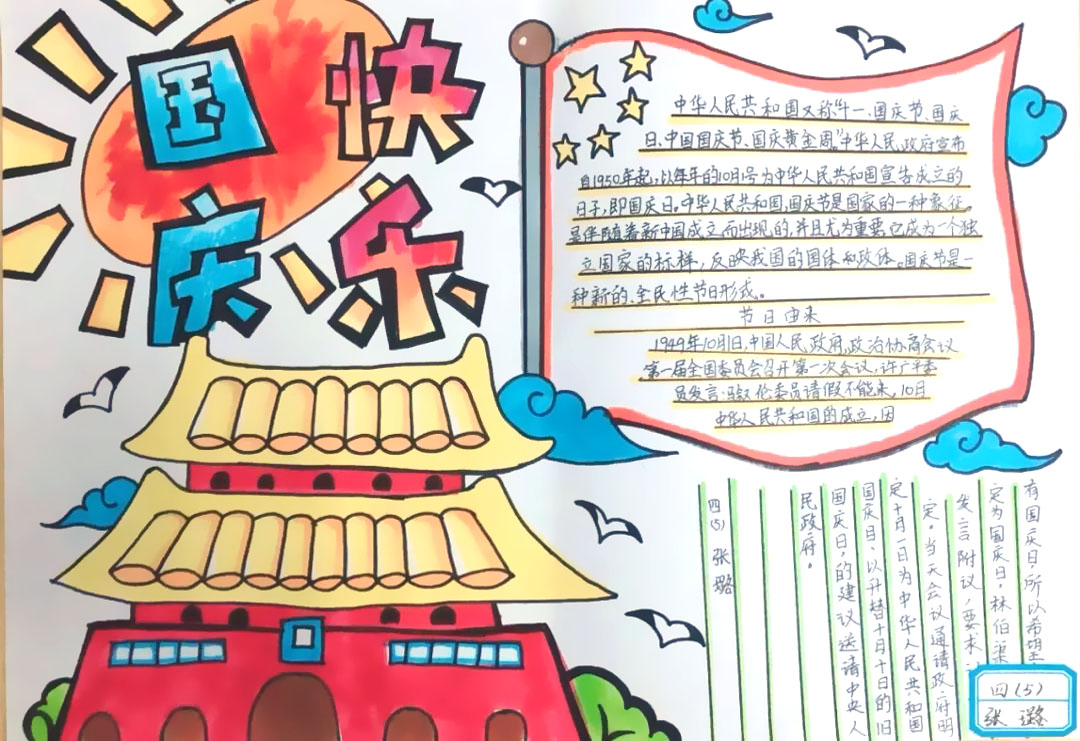 国庆
快乐
中华人民共和国又称“十一、国庆节、国庆
日、中国国庆节、国庆黄金周。”中华人民政府宣布
自1950年起，以每年的10月1号为中华人民共和国宣告成立的
日子，即国庆日。中华人民共和国，国庆节是国家的一种象征。
是伴随着新中国成立而出现的，并且尤为重要，它成为一个独
立国家的标样，反映我国的国体和政体。国庆节是一
种新的、全民性节日形式。
节日由来
1949年10月1日，中国人民政府，政治协商会议
第一届全国委员会召开第一次会议，许广平委
员发言：“委员请假不能来，10日
中华人民共和国的成立，因
有国庆日，所以希望
定为国庆日，林伯渠
发言附议，要求
定。当天会议通请政府明
定十月一日为中华人民共和国
国庆日、以升替十月十日的旧
国庆日，的建议送请中央人
民政府。
四(5) 张璐
四(5)
张璐